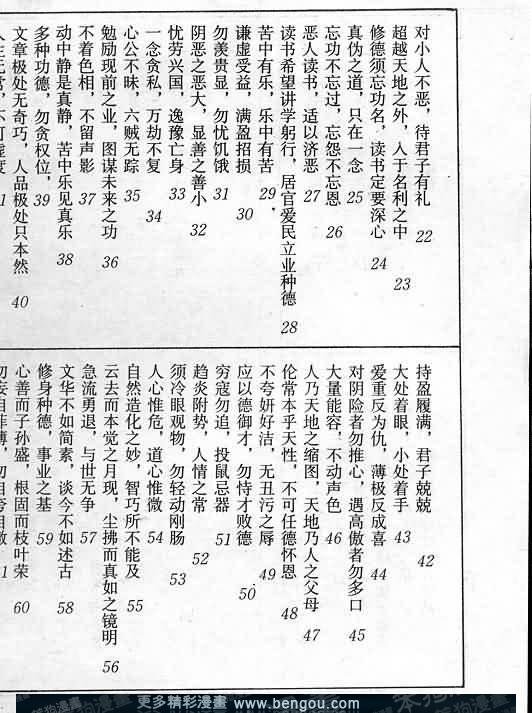 对小人不恶，待君子有礼 22
超越天地之外，入于名利之中 23
修德须忘功名，读书定要深心 24
真伪之道，只在一念 25
忘功不忘过，忘怨不忘恩 26
恶人读书，适以济恶 27
读书希望讲学躬行，居官爱民立业种德 28
苦中有乐，乐中有苦 29
谦虚受益，满盈招损 30
勿羡贵显，勿忧饥饿 31
阴恶之恶大，显善之善小 32
忧劳兴国，逸豫亡身 33
一念贪私，万劫不复 34
心公不昧，六贼无踪 35
勉励现前之业，图谋未来之功 36
不着色相，不留声影 37
动中静是真静，苦中乐见真乐 38
多种功德，勿贪权位， 39
文章极处无奇巧，人品极处只本然 40
持盈履满，君子兢兢 42
大处着眼，小处着手 43
爱重反为仇，薄极反成喜 44
对阴险者勿推心，遇高傲者勿多口 45
大量能容，不动声色 46
人乃天地之缩图，天地乃人之父母 47
伦常本乎天性，不可任德怀恩 48
不夸妍好洁，无丑污之辱 49
应以德御才，勿恃才败德 50
穷寇勿追，投鼠忌器 51
趋炎附势，人情之常 52
须冷眼观物，勿轻动刚肠 53
人心惟危，道心惟微 54
自然造化之妙，智巧所不能及 55
云去而本觉之月现，尘拂而真如之镜明 56
急流勇退，与世无争 57
文华不如简素，谈今不如述古 58
修身种德，事业之基 59
心善而子孙盛，根固而枝叶荣 60
更多精彩漫畫 www.bengou.com